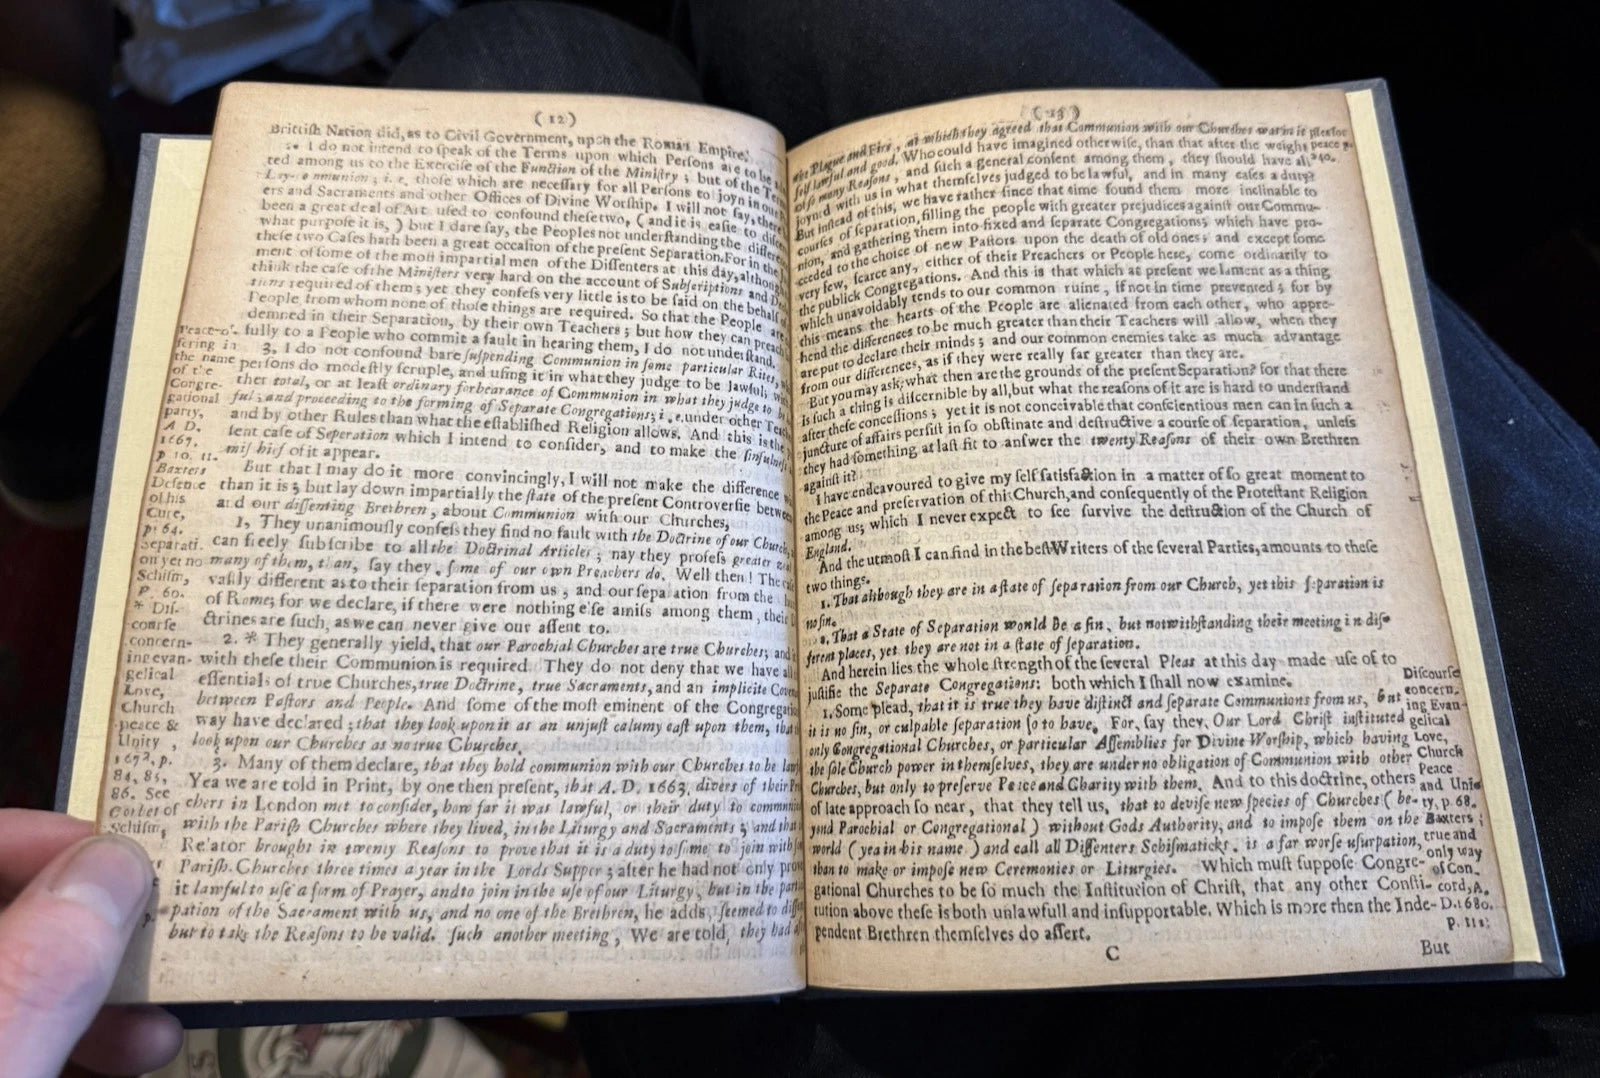 (12)
Brittish Nation did, as to Civil Government, upon the Roman Empire.
I do not intend to speak of the Terms upon which Persons are to be
ted among us to the Exercise of the Function of the Ministry; but of the
Lay-Communion; i. e. those which are necessary for all Persons to joyn in our
ers and Sacraments and other Offices of Divine Worship. I will not say, there
been a great deal of Art used to confound these two, (and it is easie to
what purpose it is,) but I dare say, the Peoples not understanding the
these two Cases hath been a great occasion of the present Separation. For in the
ment of some of the most impartial men of the Dissenters at this day, although
think the case of the Ministers very hard on the account of Subscriptions and
required of them; yet they confess very little is to be said on the behalf
People, from whom none of those things are required. So that the People are
demned in their Separation, by their own Teachers; but how they can preach
fully to a People who commit a fault in hearing them, I do not understand.
3. I do not confound bare suspending Communion in some particular Rites,
persons do modestly scruple, and using it in what they judge to be lawful;
ther total, or at least ordinary forbearance of Communion in what they judge to
ful; and proceeding to the forming of Separate Congregations; i. e. under other
and by other Rules than what the established Religion allows. And this is the
sent case of Seperation which I intend to consider, and to make the sinfulness
mis hief of it appear.
But that I may do it more convincingly, I will not make the difference
than it is; but lay down impartially the state of the present Controversie between
and our dissenting Brethren, about Communion with our Churches,
1, They unanimously confess they find no fault with the Doctrine of our Church,
can freely subscribe to all the Doctrinal Articles; nay they profess greater
many of them, than, say they, some of our own Preachers do. Well then! The
vastly different as to their separation from us; and our sepaation from the
of Rome; for we declare, if there were nothing else amiss among them, their
ctrines are such, as we can never give our assent to.
2. * They generally yield, that our Parochial Churches are true Churches; and
with these their Communion is required. They do not deny that we have
essentials of true Churches, true Doctrine, true Sacraments, and an implicite
between Pastors and People. And some of the most eminent of the
way have declared; that they look upon it as an unjust calumy cast upon them, that
look upon our Churches as no true Churches.
3. Many of them declare, that they hold communion with our Churches to be
Yea we are told in Print, by one then present, that A. D. 1663, divers of their
chers in London met to consider, how far it was lawful, or their duty to
with the Parish Churches where they lived, in the Liturgy and Sacraments; and that
Re'ator brought in twenty Reasons to prove that it is a duty to some to join with
Parish-Churches three times a year in the Lords Supper; after he had not only
it lawful to use a form of Prayer, and to join in the use of our Liturgy, but in the
pation of the Sacrament with us, and no one of the Brethren, he adds, seemed to
but to take the Reasons to be valid. such another meeting, We are told, they had
Peace-of-
fering in
the name
of the
Congre-
gational
party,
A D.
1667.
p 10. 11.
Baxters
Defence
of his
Cure,
p. 64.
Separati-
on yet no
Schism,
p. 60.
* Dis-
course
concern-
ing evan-
gelical
Love,
Church
peace &
Unity,
1672, p.
84, 85,
86. See
Corbet of
Schism,
(13)
the Plague and Fire, at which they agreed that Communion with our Churches was in it
self lawful and good. Who could have imagined otherwise, than that after the weight
of so many Reasons, and such a general consent among them, they should have all
joyned with us in what themselves judged to be lawful, and in many cases a duty?
But instead of this, we have rather since that time found them more inclinable to
courses of separation, filling the people with greater prejudices against our Commu-
nion, and gathering them into fixed and separate Congregations; which have pro-
ceeded to the choice of new Pastors upon the death of old ones; and except some
very few, scarce any, either of their Preachers or People here, come ordinarily to
the publick Congregations. And this is that which at present we lament as a thing
which unavoidably tends to our common ruine, if not in time prevented; for by
this means the hearts of the People are alienated from each other, who appre-
hend the differences to be much greater than their Teachers will allow, when they
are put to declare their minds; and our common enemies take as much advantage
from our differences, as if they were really far greater than they are.
But you may ask; what then are the grounds of the present Separation? for that there
is such a thing is discernible by all, but what the reasons of it are is hard to understand
after these concessions; yet it is not conceivable that conscientious men can in such a
juncture of affairs persist in so obstinate and destructive a course of separation, unless
they had something at last fit to answer the twenty Reasons of their own Brethren
against it?
I have endeavoured to give my self satisfaction in a matter of so great moment to
the Peace and preservation of this Church, and consequently of the Protestant Religion
among us; which I never expect to see survive the destruction of the Church of
England.
And the utmost I can find in the best Writers of the several Parties, amounts to these
two things.
1. That although they are in a state of separation from our Church, yet this separation is
no sin.
2. That a State of Separation would be a sin, but notwithstanding their meeting in dif-
ferent places, yet they are not in a state of separation.
And herein lies the whole strength of the several Pleas at this day made use of to
justifie the Separate Congregations: both which I shall now examine.
1. Some plead, that it is true they have distinct and separate Communions from us, but
it is no sin, or culpable separation so to have. For, say they, Our Lord Christ instituted
only Congregational Churches, or particular Assemblies for Divine Worship, which having
the sole Church power in themselves, they are under no obligation of Communion with other
Churches, but only to preserve Peace and Charity with them. And to this doctrine, others
of late approach so near, that they tell us, that to devise new species of Churches (be-
yond Parochial or Congregational) without Gods Authority, and to impose them on the
world (yea in his name) and call all Dissenters Schismaticks, is a far worse usurpation,
than to make or impose new Ceremonies or Liturgies. Which must suppose Congre-
gational Churches to be so much the Institution of Christ, that any other Consti-
tution above these is both unlawfull and insupportable. Which is more then the Inde-
pendent Brethren themselves do assert.
Discourse
concern-
ing Evan-
gelical
Love,
Church
Peace
and Uni-
ty, p. 68.
Baxters
true and
only way
of Con-
cord, A.
D. 1680.
p. 111;
C
But